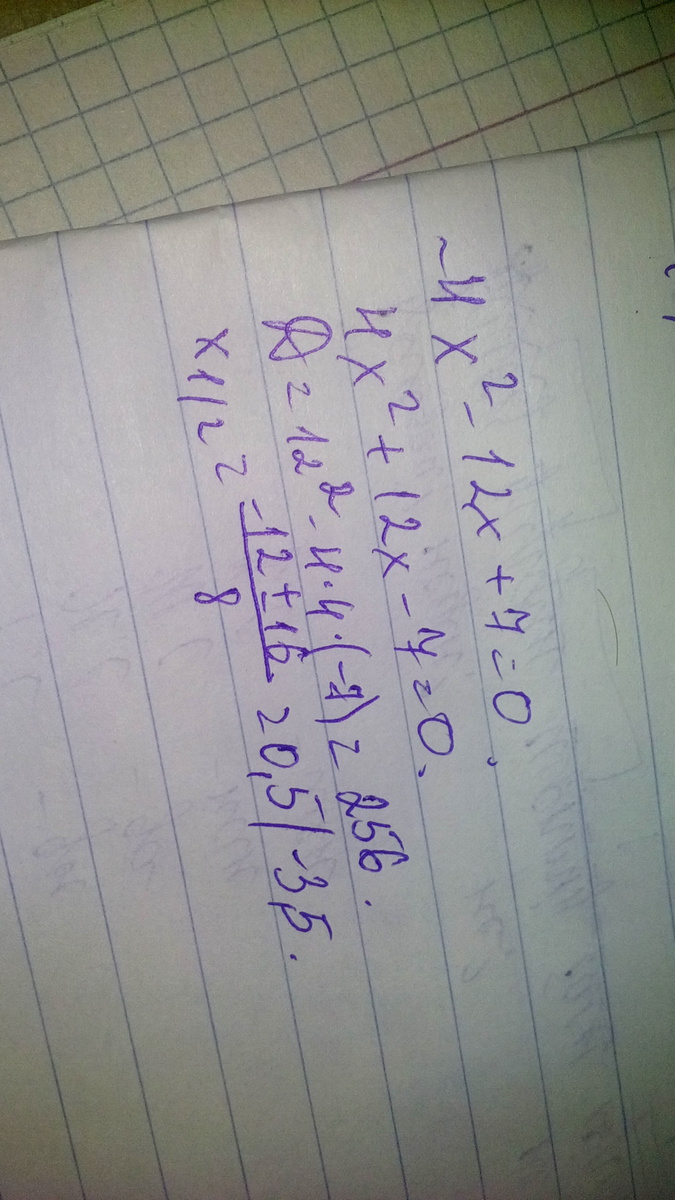 -4x² - 12x + 7 = 0.
4x² + 12x - 7 = 0.
D = 12² - 4·4·(-7) = 256.
x1/2 = (-12 ± 16)/8 = 0,5/-3,5.